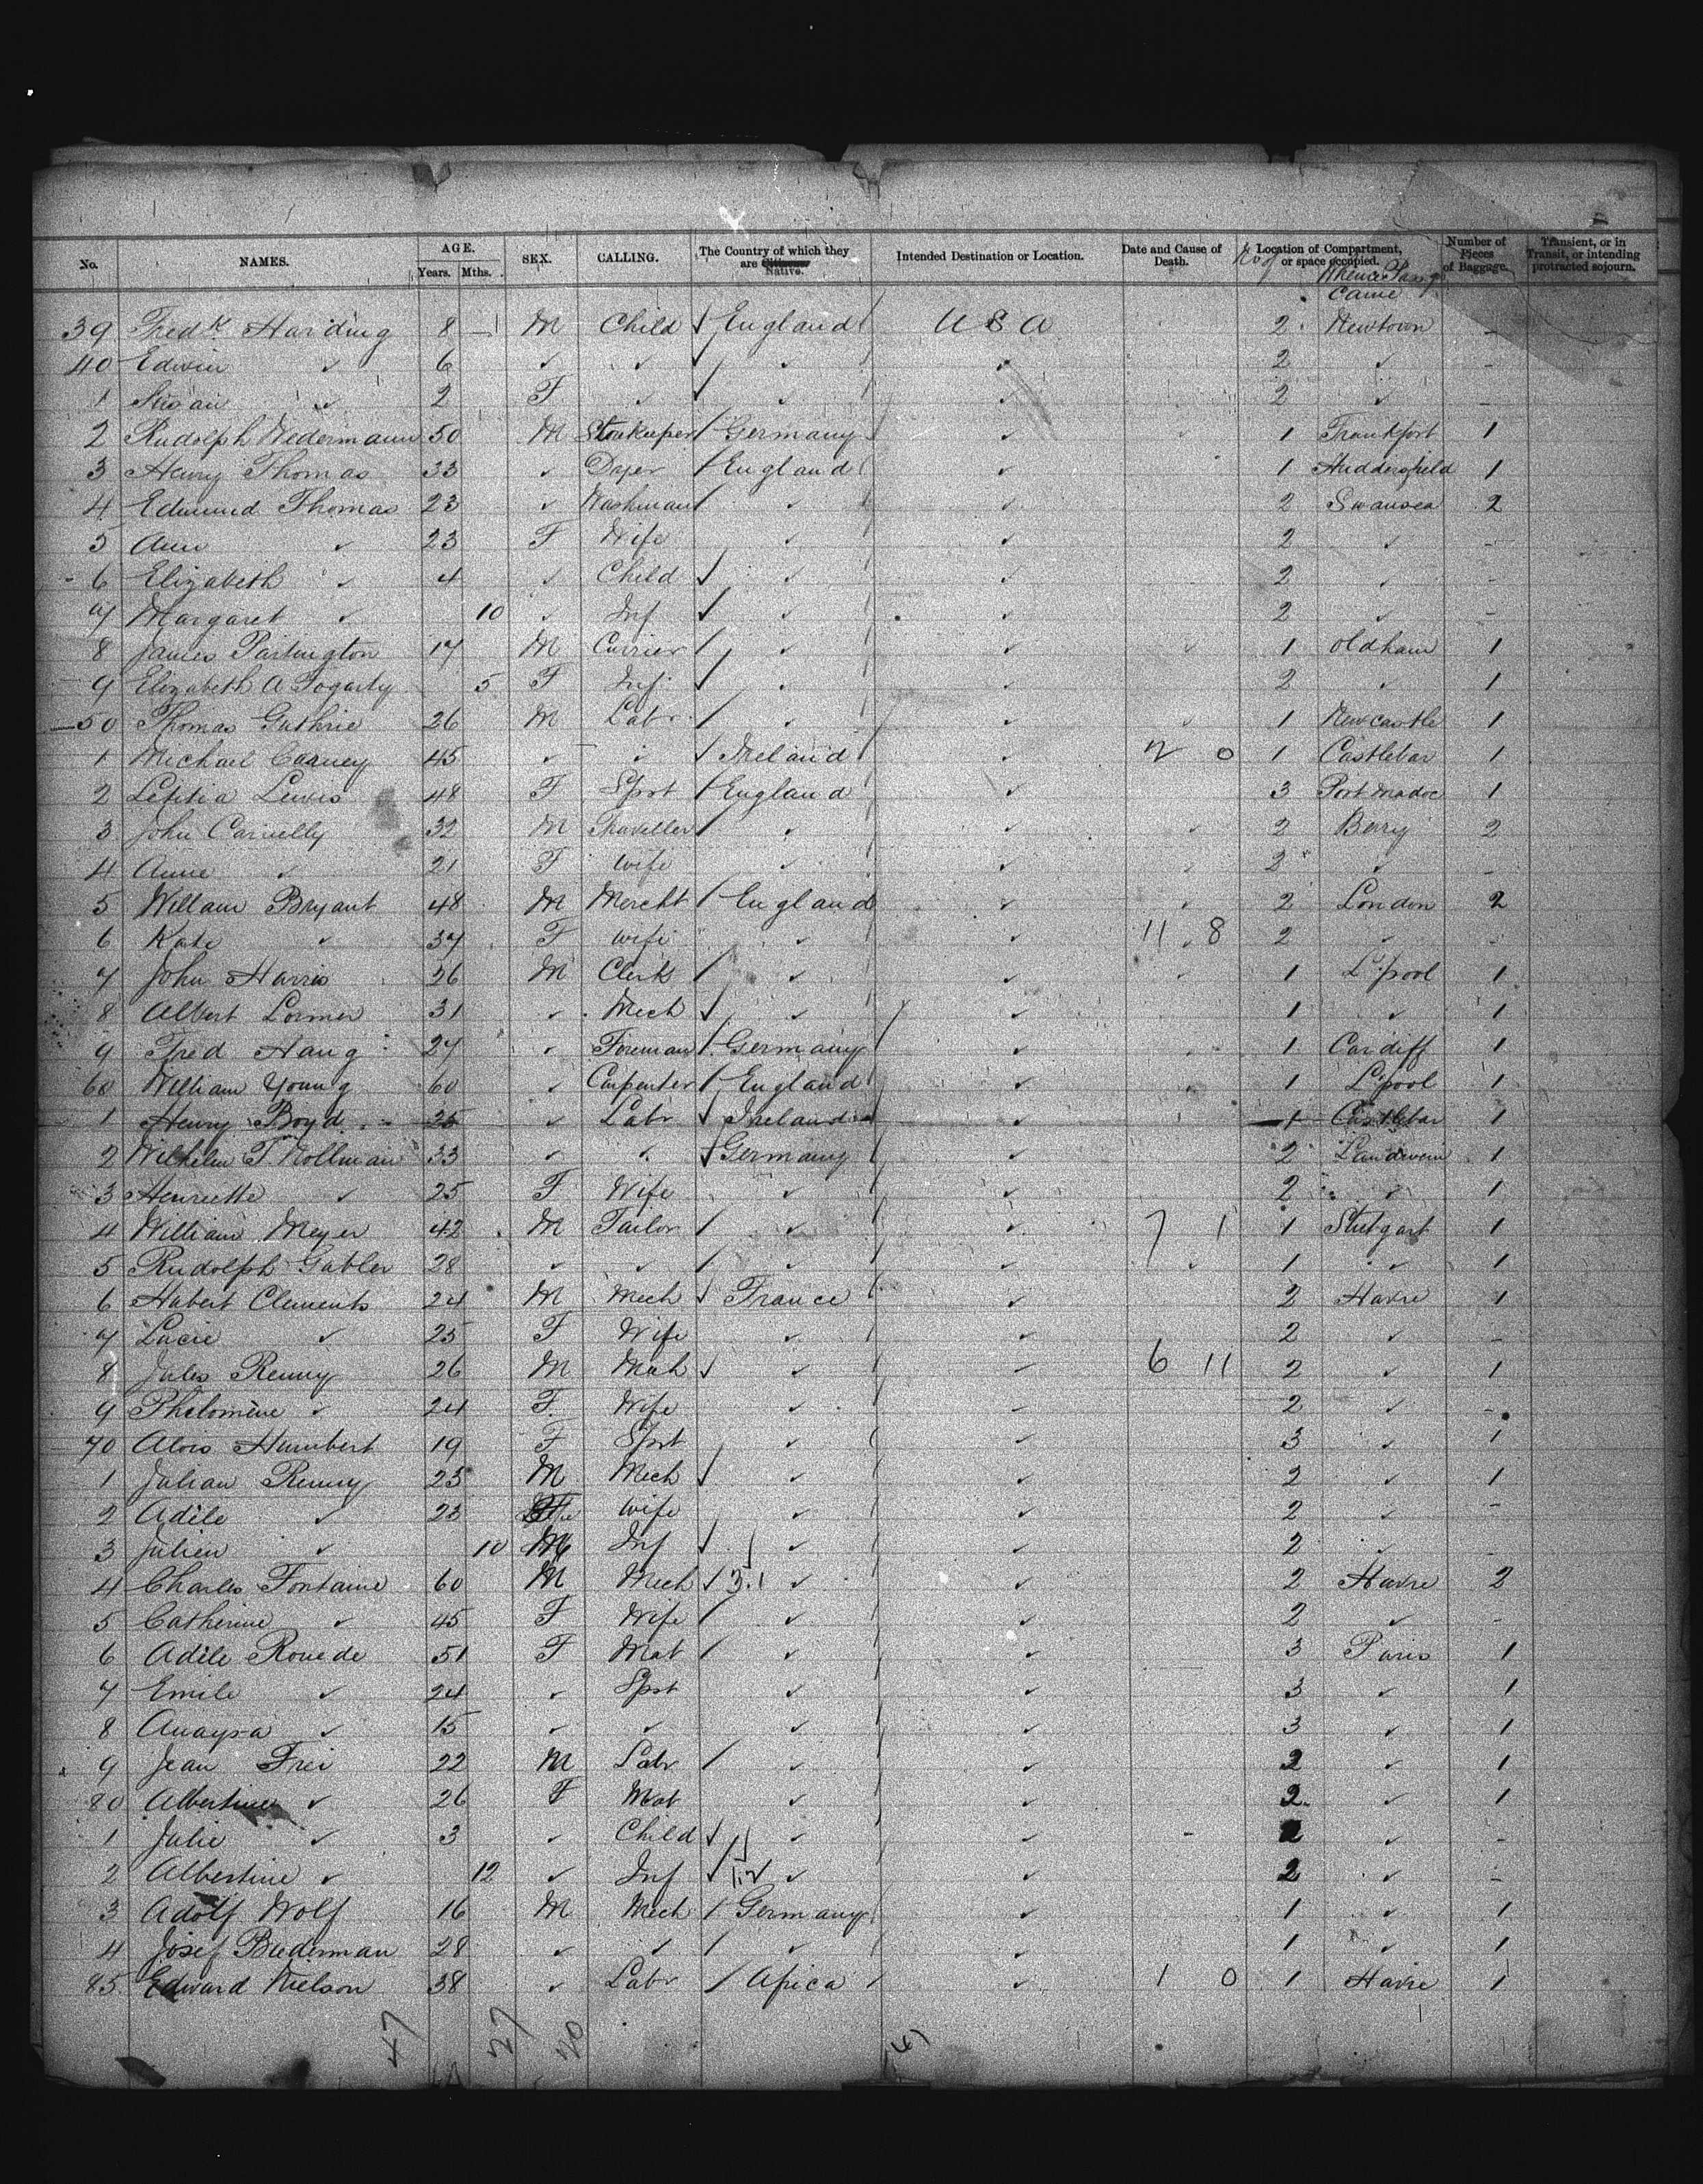 No. NAMES. AGE. Years. Mths. SEX. CALLING. The Country of which they are Citizens Native. Intended Destination or Location. Date and Cause of Death. No of Location of Compartment, or space occupied. Whence Pasgr Came Number of Pieces of Baggage. Transient, or in Transit, or intending protracted sojourn.
39 Fredk Harding 8 M Child England U S A 2 Newtown -
40 Edwin ✓ 6 ✓ ✓ ✓ ✓ 2 ✓ -
1 Susan ✓ 2 F ✓ ✓ ✓ 2 ✓ -
2 Rudolph Wedermann 50 M Storekeeper Germany ✓ 1 Frankfort 1
3 Henry Thomas 33 ✓ Dyer England ✓ 1 Huddersfield 1
4 Edmund Thomas 23 ✓ Washman ✓ ✓ 2 Swansea 2
5 Ann ✓ 23 F Wife ✓ ✓ 2 ✓ -
6 Elizabeth ✓ 4 ✓ Child ✓ ✓ 2 ✓ -
7 Margaret ✓ 10 ✓ Inf ✓ ✓ 2 ✓ -
8 James Partington 17 M Currier ✓ ✓ 1 Oldham 1
9 Elizabeth A Fogarty 5 F Inf ✓ ✓ 2 ✓ 1
50 Thomas Guthrie 26 M Labr ✓ ✓ 1 Newcastle 1
1 Michael Carney 45 ✓ ✓ Ireland ✓ 2 0 1 Castlebar 1
2 Letitia Lewis 48 F Spst England ✓ 3 Port Madoc 1
3 John Connelly 32 M Traveller ✓ ✓ 2 Berry 2
4 Anne ✓ 21 F Wife ✓ ✓ 2 ✓ -
5 William Bryant 48 M Mercht England ✓ 2 London 2
6 Kate ✓ 37 F Wife ✓ ✓ 11 8 2 ✓ -
7 John Harris 26 M Clerk ✓ ✓ 1 L'pool 1
8 Albert Lormer 31 ✓ Mech ✓ ✓ 1 ✓ 1
9 Fred Haug 27 ✓ Foreman Germany ✓ 1 Cardiff 1
60 William Young 60 ✓ Carpenter England ✓ 1 L'pool 1
1 Henry Boyd 25 ✓ Labr Ireland 1 Castlebar 1
2 Wilhelm T Nollman 33 ✓ ✓ Germany ✓ 2 1
3 Henriette ✓ 25 F Wife ✓ ✓ 2 ✓ 1
4 William Meyer 42 M Tailor ✓ ✓ 7 1 1 Stutgart 1
5 Rudolph Gabler 28 ✓ ✓ ✓ ✓ 1 ✓ 1
6 Hubert Clements 24 M Mech France ✓ 2 Havre 1
7 Lucie ✓ 25 F Wife ✓ ✓ 2 ✓ -
8 Jules Remy 26 M Mech ✓ ✓ 6 11 2 ✓ 1
9 Philomène ✓ 24 F Wife ✓ ✓ 2 ✓ -
70 Alois Humbert 19 F Spst ✓ ✓ 3 ✓ 1
1 Julian Remy 23 M Mech ✓ ✓ 2 ✓ 1
2 Adèle ✓ 23 F Wife ✓ ✓ 2 ✓ -
3 Julien ✓ 10 M Inf ✓ ✓ 2 ✓
4 Charles Fontaine 60 M Mech 3.1 ✓ ✓ 2 Havre 2
5 Catherine ✓ 45 F Wife ✓ ✓ 2 ✓ -
6 Adèle Rouede 51 F Mat ✓ ✓ 3 Paris 1
7 Emile ✓ 24 ✓ Spst ✓ ✓ 3 ✓ 1
8 Anaysa ✓ 15 ✓ ✓ ✓ ✓ 3 ✓ 1
9 Jean Frei 22 M Labr ✓ ✓ 2 ✓ 1
80 Albertine ✓ 26 F Mat ✓ ✓ 2 ✓ 1
1 Julie ✓ 3 ✓ Child ✓ ✓ 2 ✓ -
2 Albertine ✓ 12 ✓ Inf ✓ ✓ 2 ✓ -
3 Adolf Wolf 16 M Mech Germany ✓ 1 ✓ 1
4 Josef Biederman 28 ✓ ✓ ✓ ✓ 1 ✓ 1
85 Edward Nielson 38 ✓ Labr Africa ✓ 1 0 1 Havre 1
47 27 20